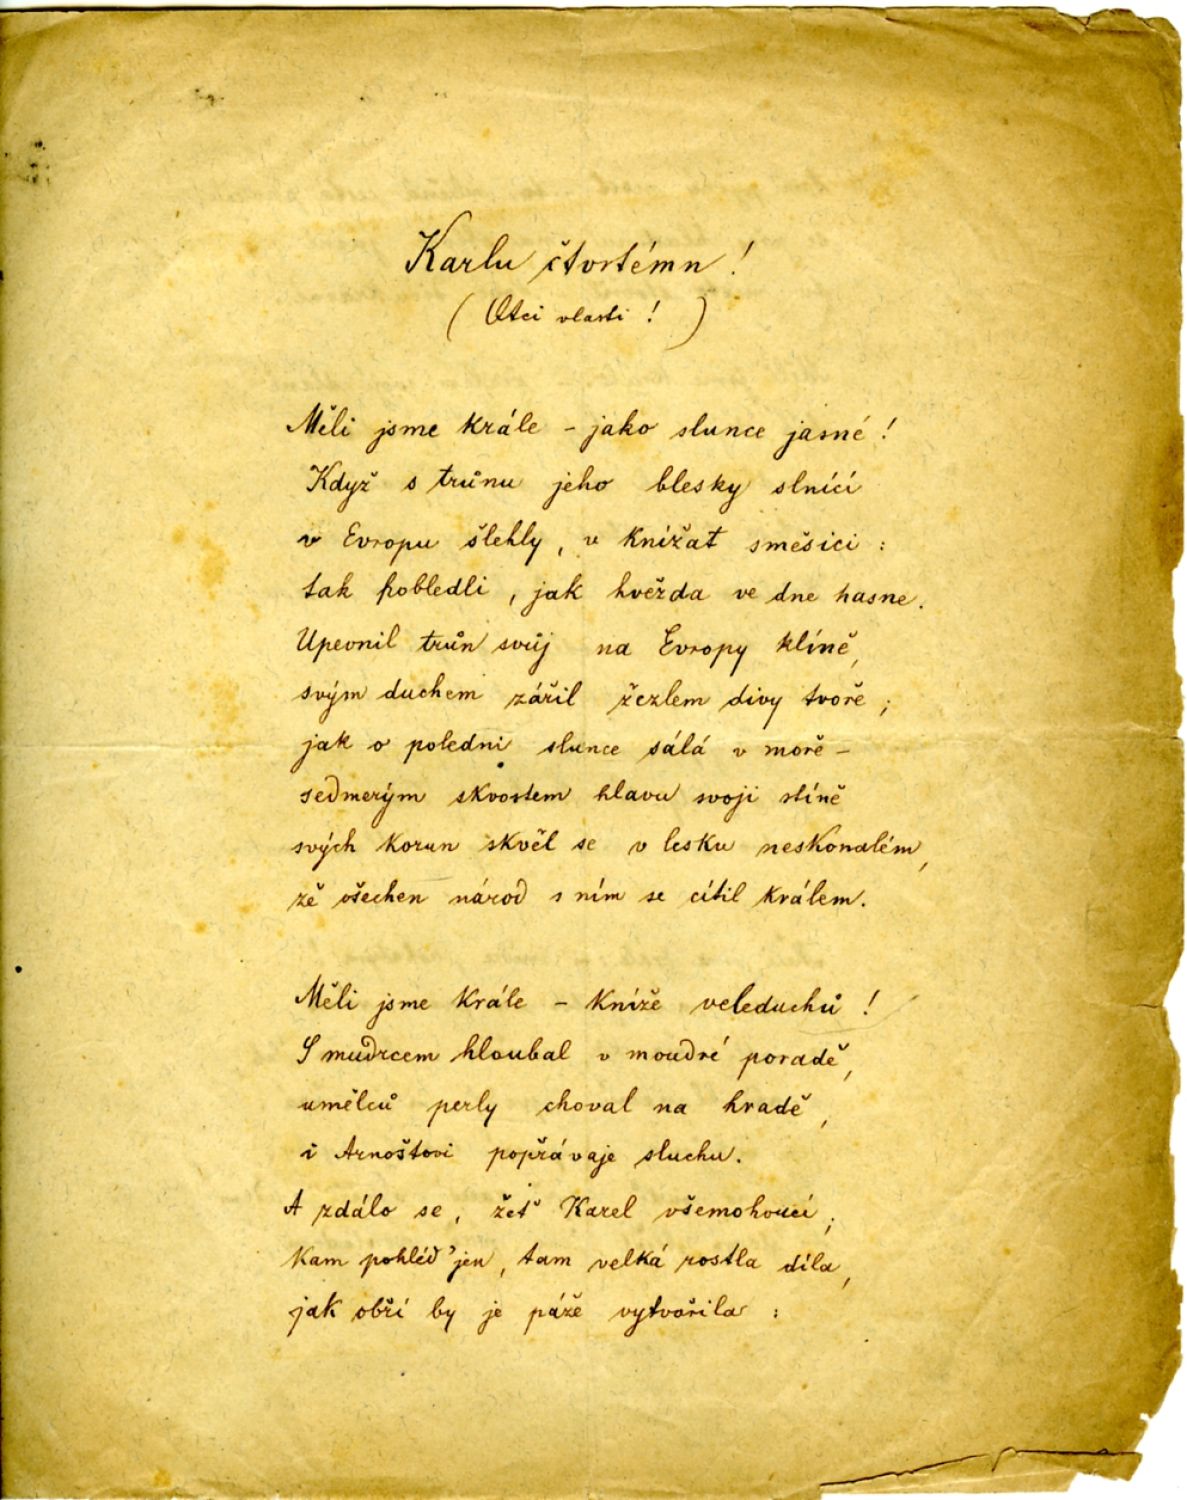 Karlu čtvrtému !
( Otci vlasti ! )
Měli jsme krále – jako slunce jasné !
Když s trůnu jeho blesky slnící
v Evropu šlehly, v knížat směsici :
tak pobledli, jak hvězda ve dne hasne.
Upevnil trůn svůj na Evropy klíně,
svým duchem zářil žezlem divy tvoře ;
jak o poledni slunce sálá v moře –
sedmerým skvostem hlavu svoji stíně
svých korun skvěl se v lesku neskonalém,
že všechen národ s ním se cítil králem.
Měli jsme krále – kníže veleduchů !
S mudrcem hloubal v moudré poradě,
umělců perly choval na hradě,
i Arnoštovi popřávaje sluchu.
A zdálo se, žeť Karel všemohoucí ;
kam pohléd' jen, tam velká rostla díla,
jak obří by je páže vytvořila :